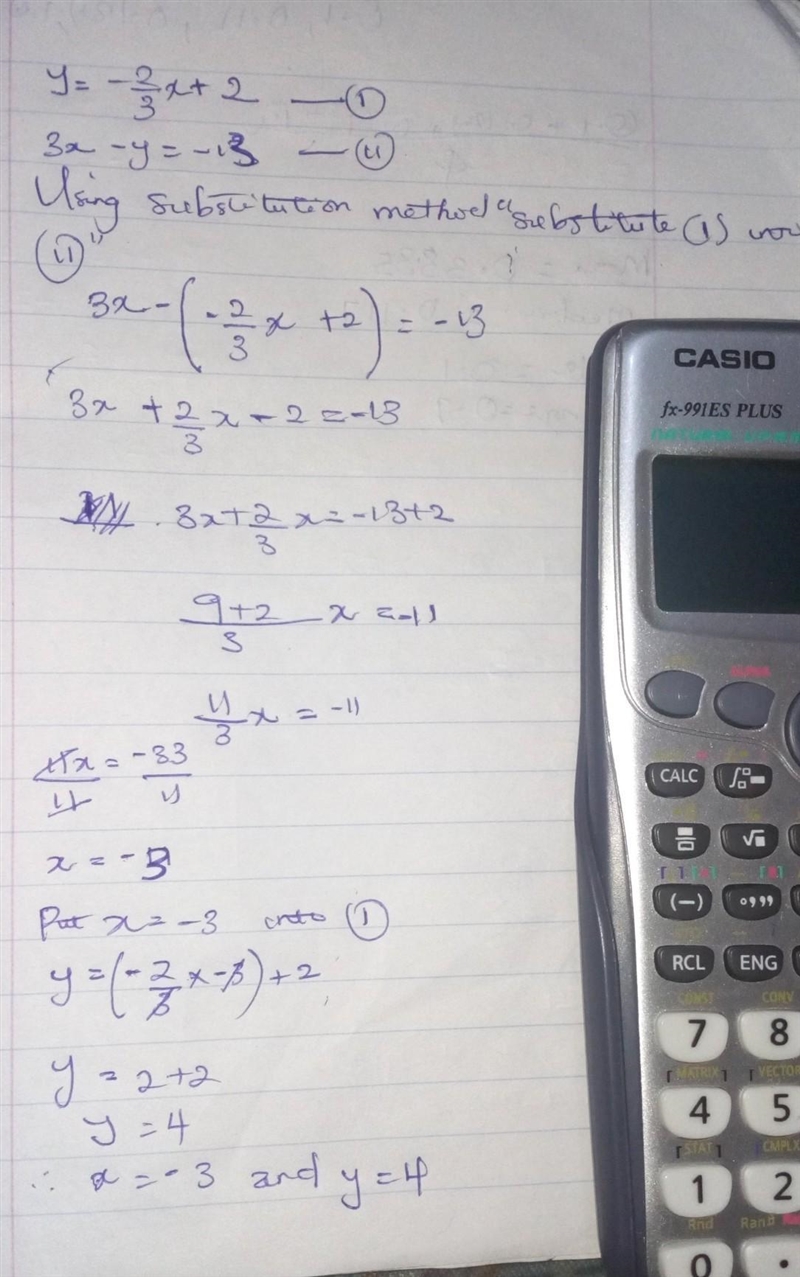 y = -2/3 x + 2 — (I)
3x - y = -13 — (II)
Using substitution method "substitute (1) 
(II)"
3x - (-2/3 x + 2) = -13
3x + 2/3 x - 2 = -13
3x + 2/3 x = -13 + 2
9+2/3 x = -11
11/3 x = -11
11x/11 = -33/11
x = -3
Put x = -3 into (I)
y = (-2/3 x -3) + 2
y = 2+2
y = 4
∴ x = -3 and y = 4
CASIO
fx-991ES PLUS
CALC
(-)
RCL ENG
CONST CONV
7 8
MATRIX VECTOR
4 5
STAT CMPLX
1 2
Rnd Ran#
0 .